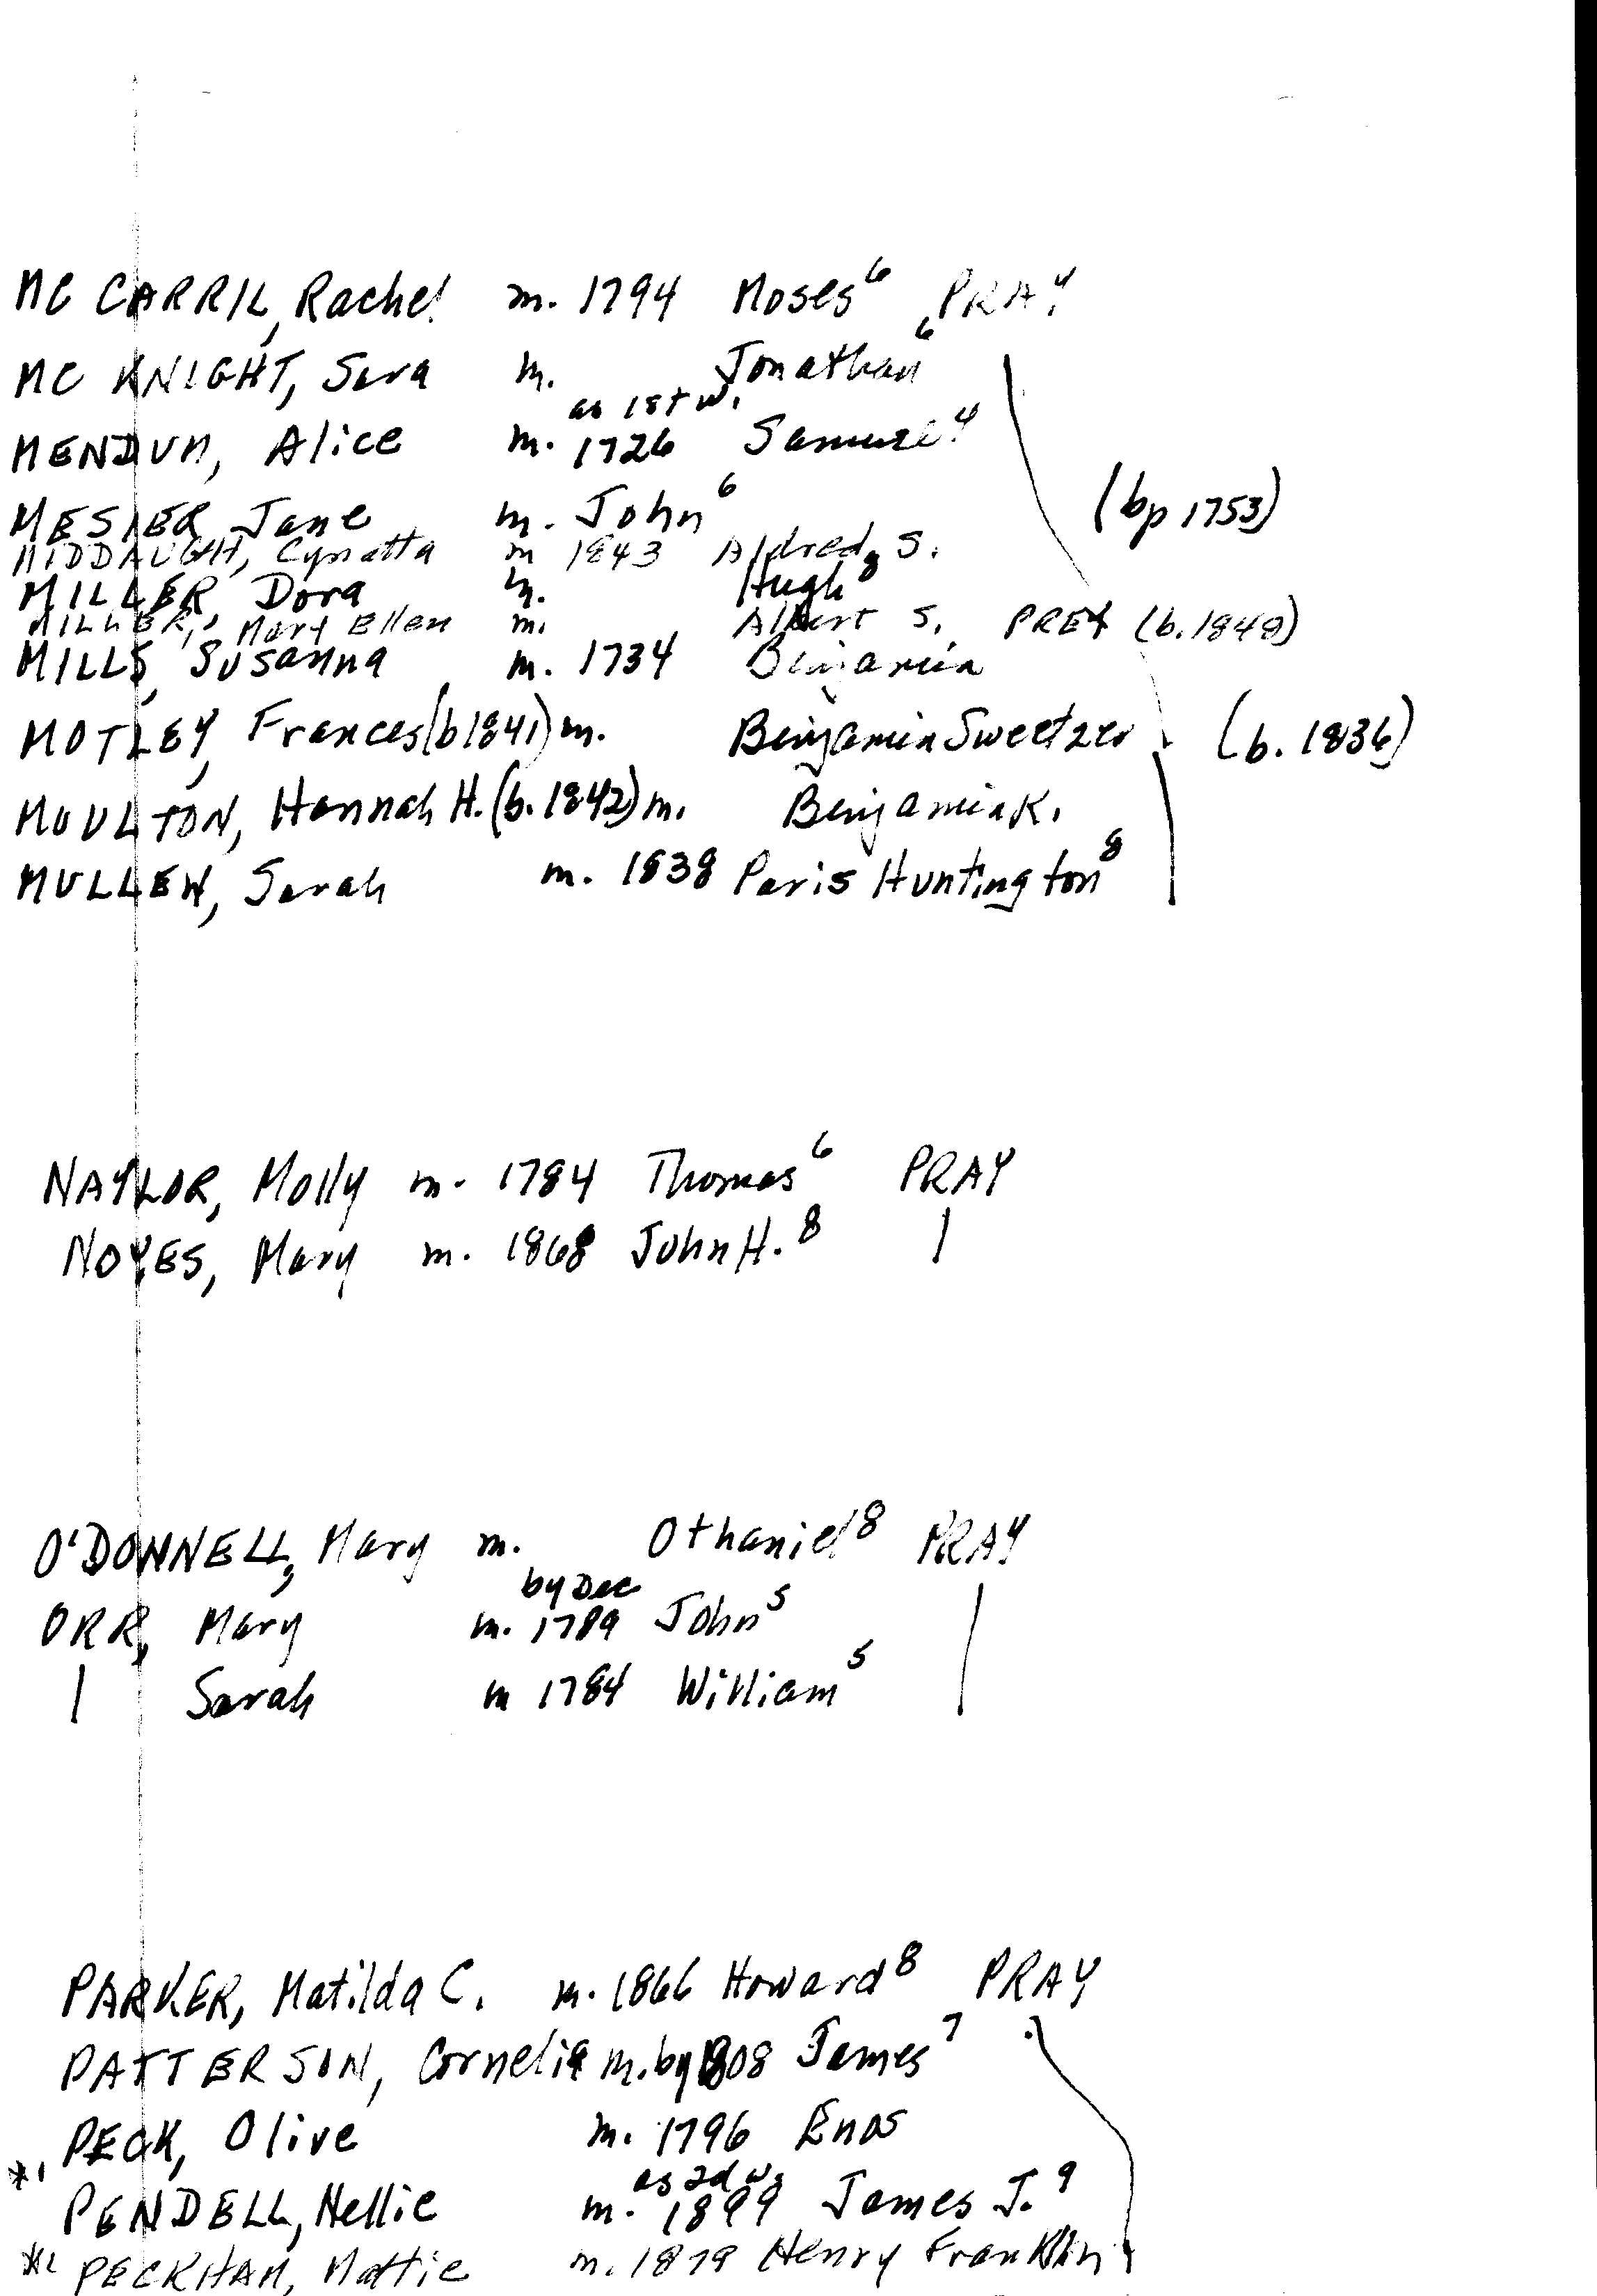 MC CARRIL, Rachel m. 1794 Moses⁶ PRAY
MC KNIGHT, Sara m. Jonathan⁶
as 1st w.
MENDUM, Alice m. 1726 Samuel⁴
(bp 1753)
MESIER, Jane m. John⁶
MIDDAUGH, Cynatta m 1843 Aldred S.
MILLER, Dora m. Hugh⁸
MILLER, Mary Ellen m. Albert S. PREY (b. 1848)
MILLS, Susanna m. 1734 Benjamin
MOTLEY, Frances (b 1841) m. Benjamin Sweetzer (b. 1836)
MOULTON, Hannah H. (b. 1842) m. Benjamin K.
MULLEN, Sarah m. 1838 Paris Huntington⁸
NAYLOR, Molly m. 1784 Thomas⁶ PRAY
NOYES, Mary m. 1868 John H.⁸
O'DONNELL, Mary m. Othaniel⁸ PRAY
by Dec
ORR, Mary m. 1789 John⁵
Sarah m 1784 William⁵
PARKER, Matilda C. m. 1866 Howard⁸ PRAY
PATTERSON, Cornelia m. by 1808 James⁷
PECK, Olive m. 1796 Enos
as 2d w.
*1 PENDELL, Nellie m. 1899 James J.⁹
*2 PECKHAM, Mattie m. 1879 Henry Franklin